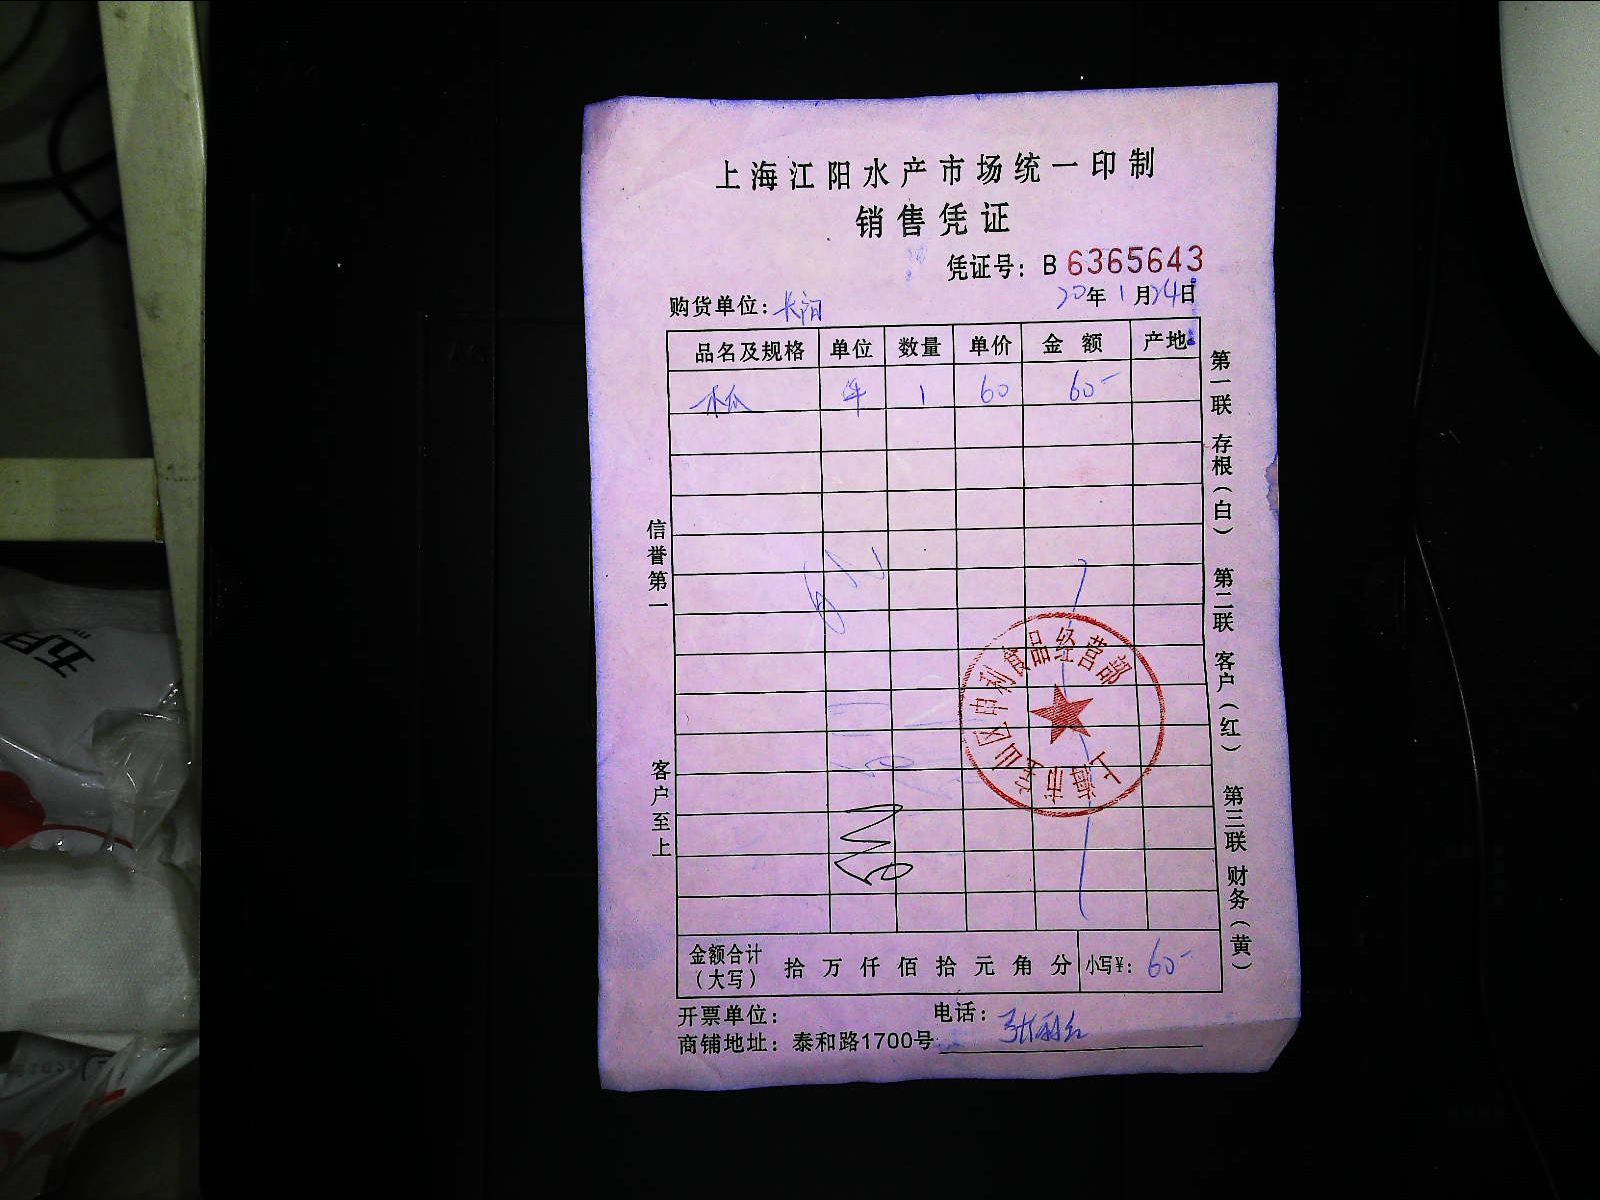 上海江阳水产市场统一印制
销售凭证
凭证号：B 6365643
购货单位：长阳 20年1月24日
品名及规格 单位 数量 单价 金额 产地
木瓜 件 1 60 60-
信誉第一
客户至上
第一联 存根（白） 第二联 客户（红） 第三联 财务（黄）
上海市宝山区申利食品经营部
金额合计（大写） 拾 万 仟 佰 拾 元 角 分 小写¥：60-
开票单位： 电话：
商铺地址：泰和路1700号
五月